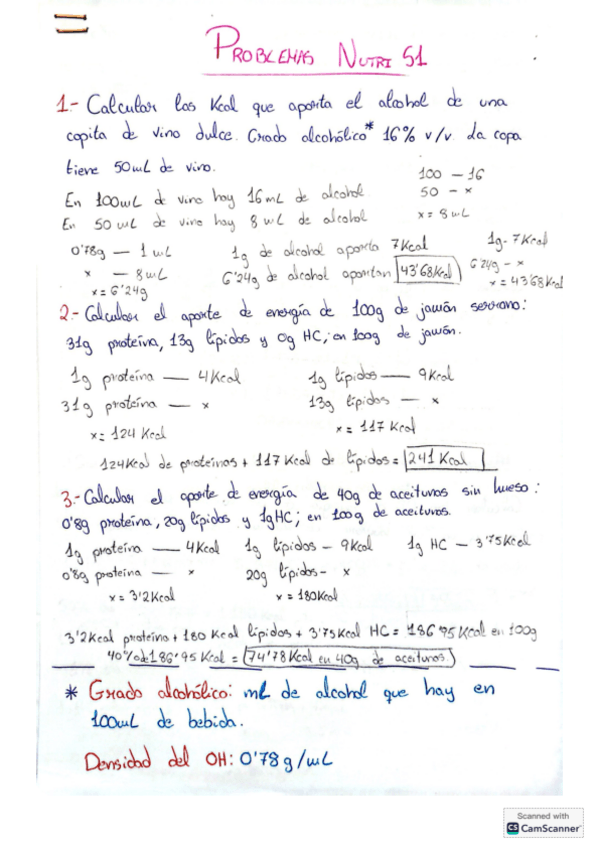 PROBLEMAS NUTRI S1
1.- Calcular las Kcal que aporta el alcohol de una
copita de vino dulce. Grado alcohólico* 16% v/v. La copa
tiene 50mL de vino.
100 — 16
50 — x
x = 8 mL
En 100mL de vino hay 16 mL de alcohol
En 50 mL de vino hay 8 mL de alcohol
0'78g — 1 mL
x — 8 mL
x = 6'24g
1g de alcohol aporta 7Kcal
6'24g de alcohol aportan 43'68Kcal
1g - 7Kcal
6'24g - x
x = 43'68Kcal
2.- Calcular el aporte de energía de 100g de jamón serrano:
31g proteína, 13g lípidos y 0g HC; en 100g de jamón.
1g proteína — 4Kcal
31g proteína — x
x = 124 Kcal
1g lípidos — 9Kcal
13g lípidos — x
x = 117 Kcal
124Kcal de proteínas + 117 Kcal de lípidos = 241 Kcal
3.- Calcular el aporte de energía de 40g de aceitunas sin hueso:
0'8g proteína, 20g lípidos y 1g HC; en 100g de aceitunas.
1g proteína — 4Kcal
0'8g proteína — x
x = 3'2Kcal
1g lípidos - 9Kcal
20g lípidos - x
x = 180Kcal
1g HC — 3'75Kcal
3'2Kcal proteína + 180 Kcal lípidos + 3'75Kcal HC = 186'95 Kcal en 100g
40% de 186'95 Kcal = 74'78 Kcal en 40g de aceitunas
* Grado alcohólico: mL de alcohol que hay en
100mL de bebida.
Densidad del OH: 0'78 g/mL
Scanned with
CS CamScanner